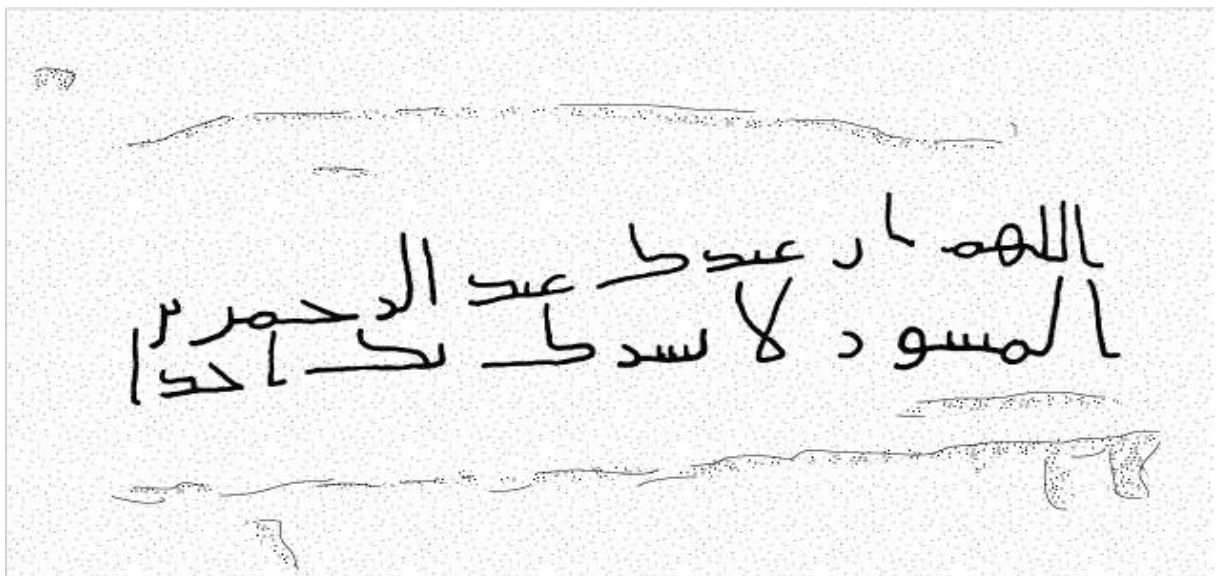 اللهم ان عبدك عبد الرحمن بن
المسور لا يشرك بك احدا